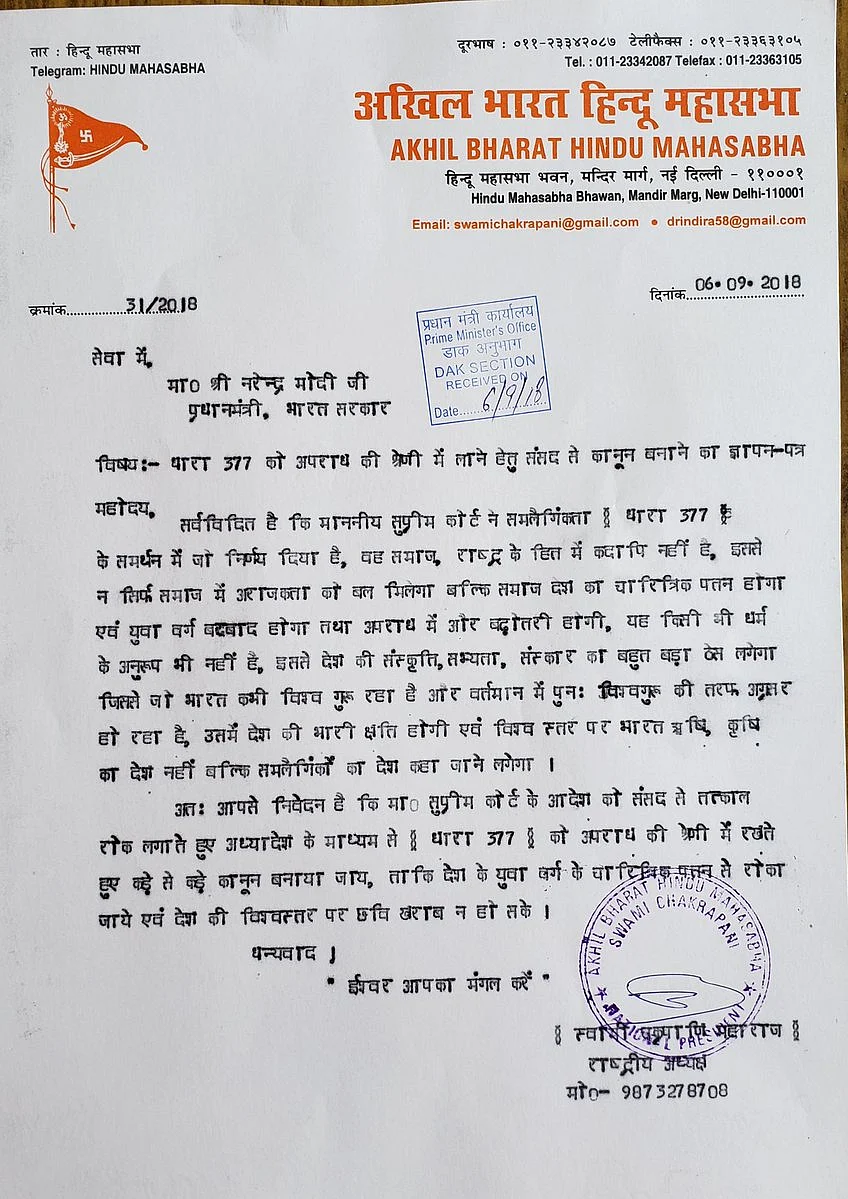 तार : हिन्दू महासभा
Telegram: HINDU MAHASABHA
दूरभाष : ०११-२३३४२०८७ टेलीफैक्स : ०११-२३३६३१०५
Tel. : 011-23342087 Telefax : 011-23363105
ॐ
अखिल भारत हिन्दू महासभा
AKHIL BHARAT HINDU MAHASABHA
हिन्दू महासभा भवन, मन्दिर मार्ग, नई दिल्ली - ११०००१
Hindu Mahasabha Bhawan, Mandir Marg, New Delhi-110001
Email: swamichakrapani@gmail.com • drindira58@gmail.com
क्रमांक....31/2018
दिनांक....06.09.2018
प्रधान मंत्री कार्यालय
Prime Minister's Office
डाक अनुभाग
DAK SECTION
RECEIVED ON
Date....6/9/18
सेवा में,
मा० श्री नरेन्द्र मोदी जी
प्रधानमंत्री, भारत सरकार
विषय:- धारा 377 को अपराध की श्रेणी में लाने हेतु संसद से कानून बनाने का ज्ञापन-पत्र
महोदय,
सर्वविदित है कि माननीय सुप्रीम कोर्ट ने समलैगिंकता ( धारा 377 )
के समर्थन में जो निर्णय दिया है, वह समाज, राष्ट्र के हित में कदापि नहीं है, इससे
न सिर्फ समाज में अराजकता को बल मिलेगा बल्कि समाज देश का चारित्रिक पतन होगा
एवं युवा वर्ग बरबाद होगा तथा अपराध में और बढ़ोतरी होगी, यह किसी भी धर्म
के अनुरूप भी नहीं है, इससे देश की संस्कृति, सभ्यता, संस्कार का बहुत बड़ा ठेस लगेगा
जिससे जो भारत कभी विश्व गुरू रहा है और वर्तमान में पुन: विश्वगुरू की तरफ अग्रसर
हो रहा है, उसमें देश की भारी क्षति होगी एवं विश्व स्तर पर भारत ऋषि, कृषि
का देश नहीं बल्कि समलैगिंकों का देश कहा जाने लगेगा ।
अत: आपसे निवेदन है कि मा० सुप्रीम कोर्ट के आदेश को संसद से तत्काल
रोक लगाते हुए अध्यादेश के माध्यम से ( धारा 377 ) को अपराध की श्रेणी में रखते
हुए कड़े से कड़े कानून बनाया जाय, ताकि देश के युवा वर्ग के चारित्रिक पतन से रोका
जाये एवं देश की विश्वस्तर पर छवि खराब न हो सके ।
धन्यवाद ।
" ईश्वर आपका मंगल करें "
AKHIL BHARAT HINDU MAHASABHA
SWAMI CHAKRAPANI
NATIONAL PRESIDENT
( स्वामी चक्रपाणि महाराज )
राष्ट्रीय अध्यक्ष
मो०- 9873278708